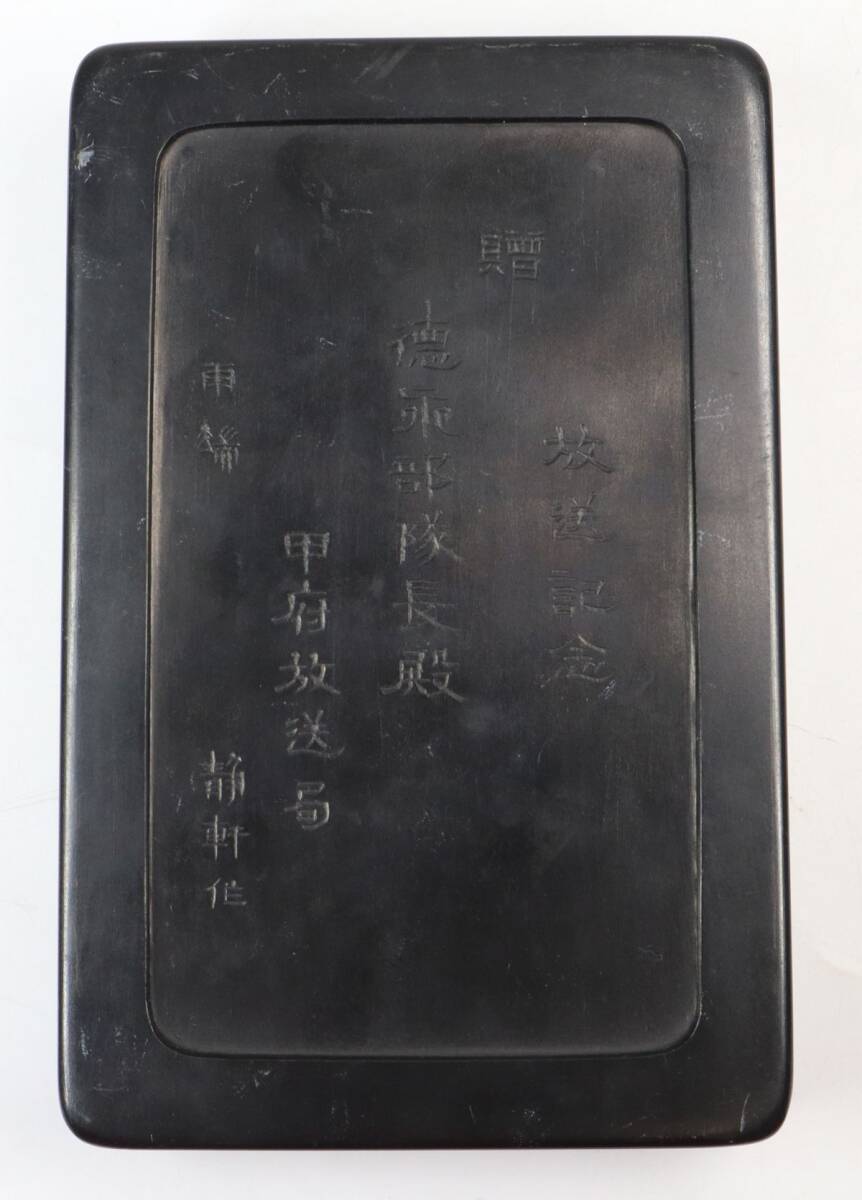 放送記念
贈
德永部隊長殿
甲府放送局
雨端
静軒作